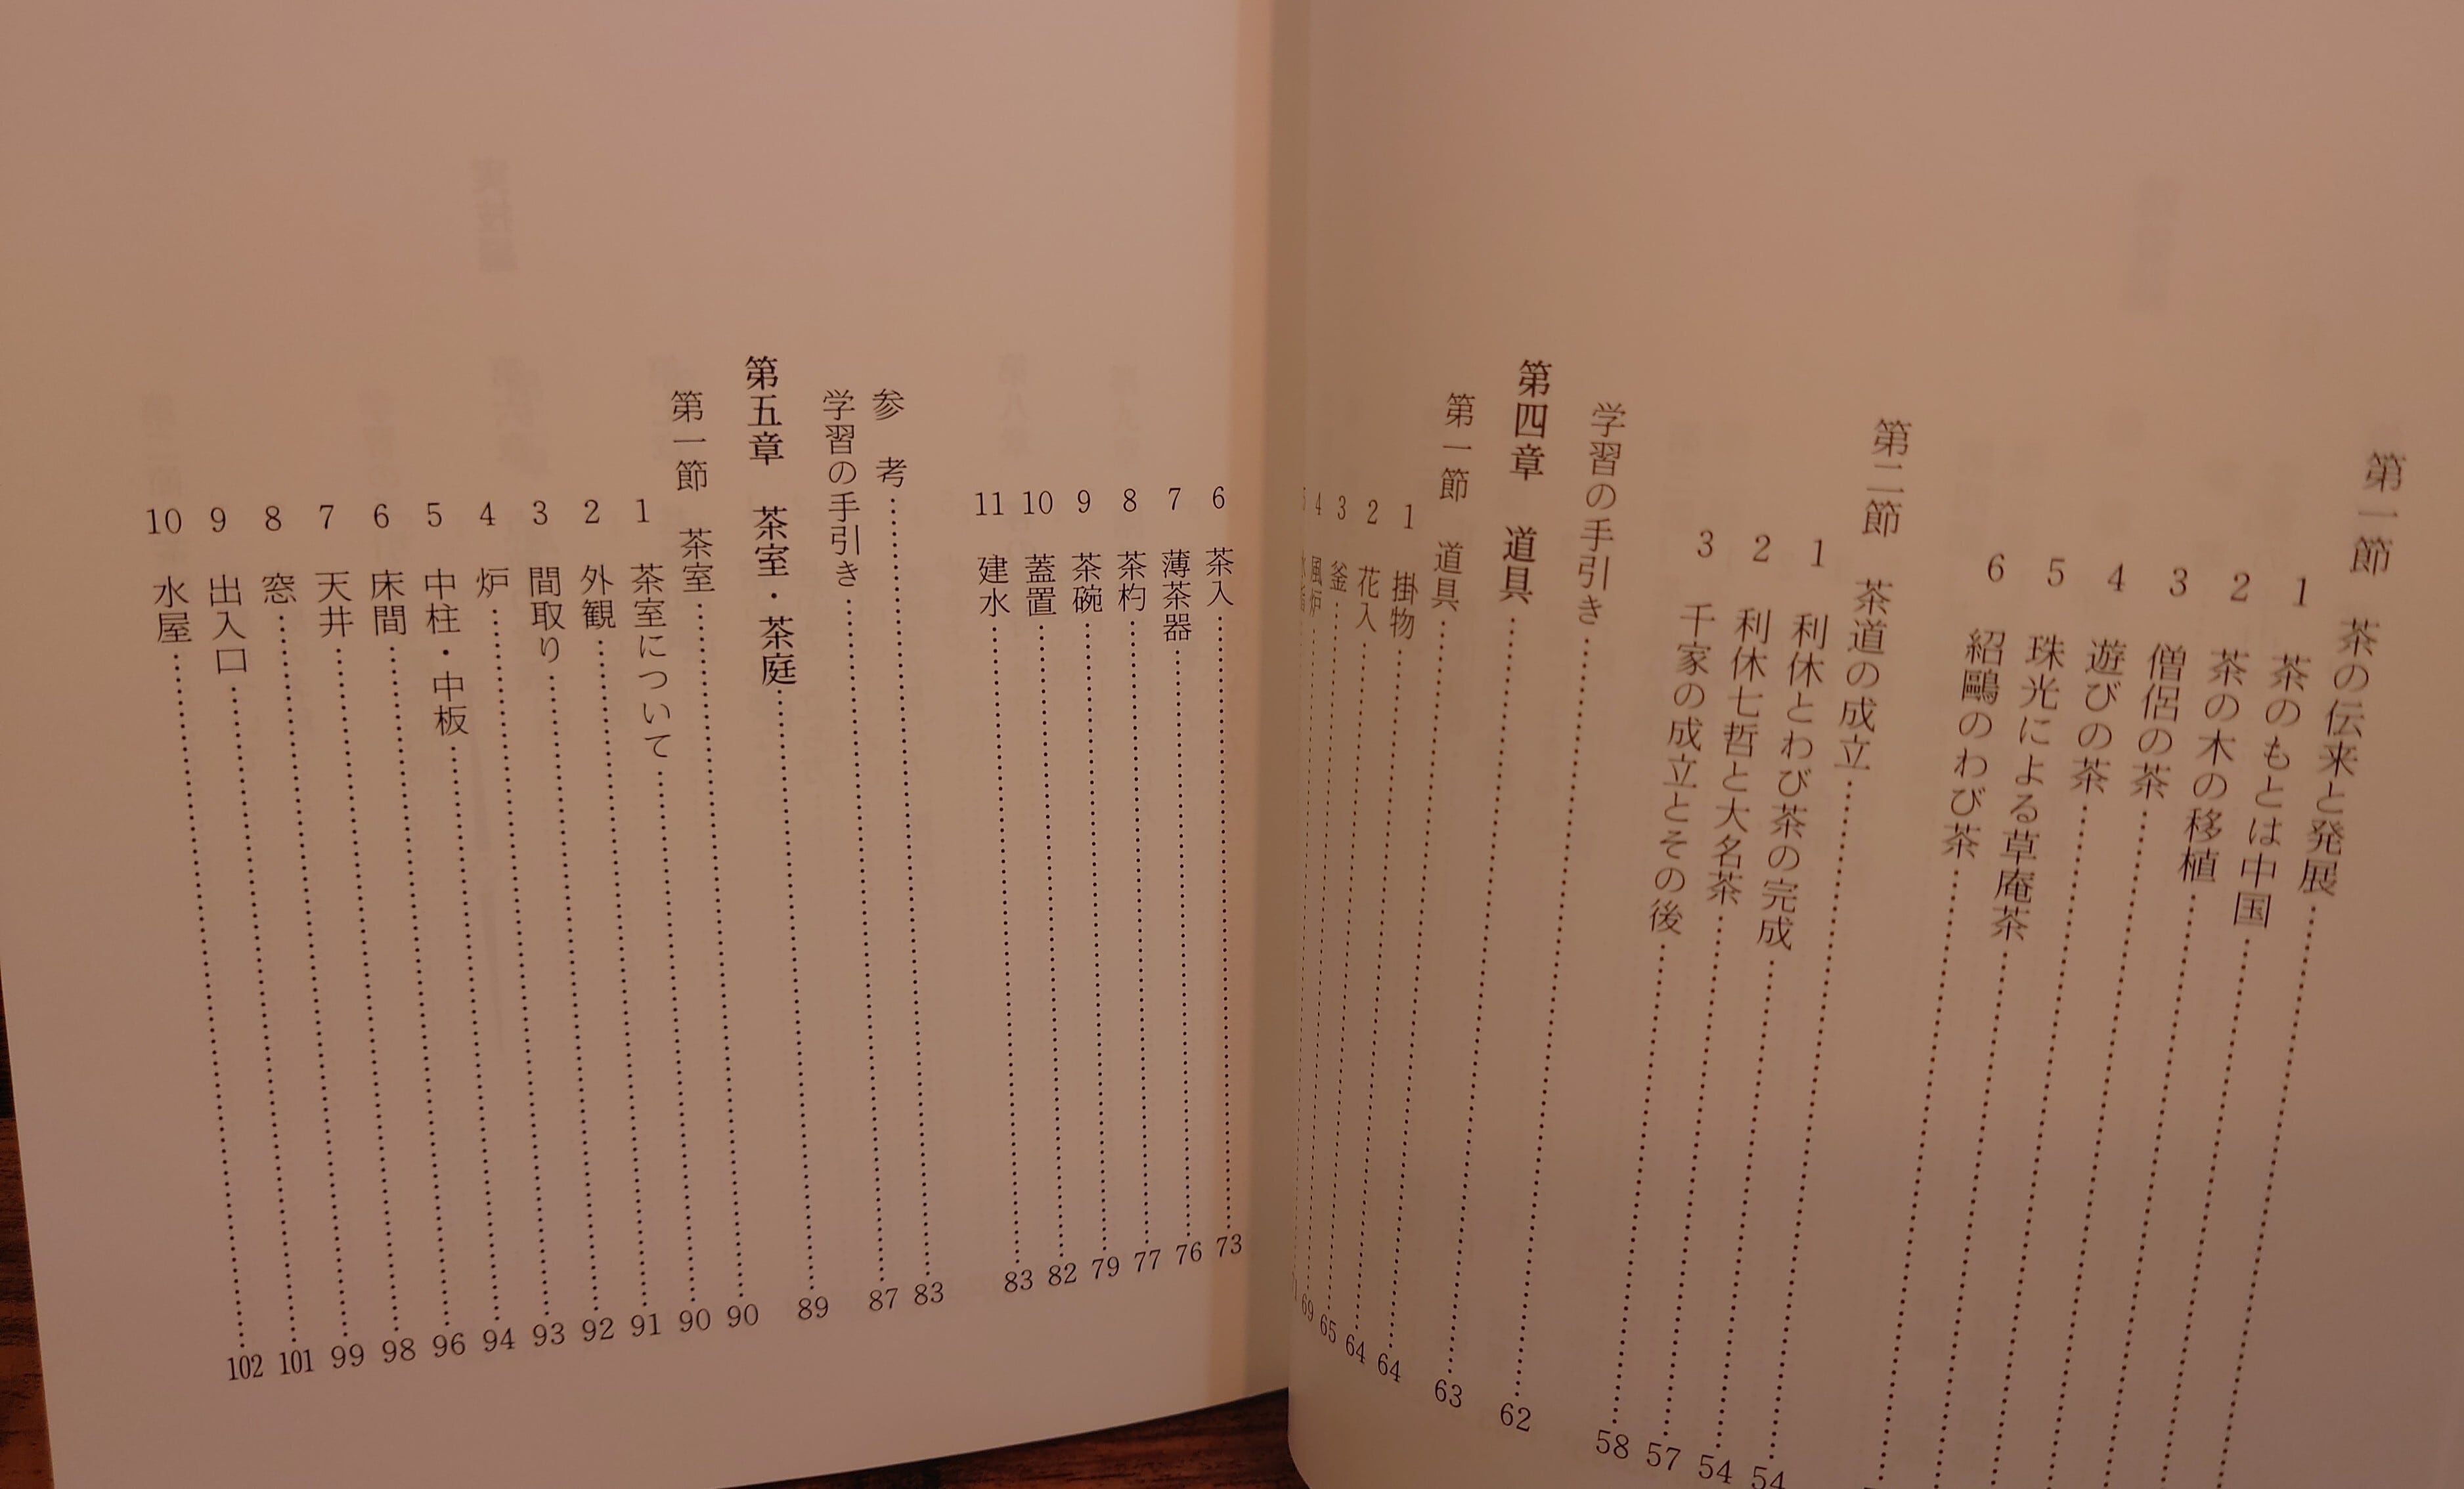 第一節　茶の伝来と発展
1　茶のもとは中国
2　茶の木の移植
3　僧侶の茶
4　遊びの茶
5　珠光による草庵茶
6　紹鷗のわび茶
第二節　茶道の成立……54
1　利休とわび茶の完成……54
2　利休七哲と大名茶……57
3　千家の成立とその後……58
学習の手引き……62
第四章　道具……63
第一節　道具……64
1　掛物……64
2　花入……65
3　釜……69
4　風炉
6　茶入……73
7　薄茶器……76
8　茶杓……77
9　茶碗……79
10　蓋置……82
11　建水……83
参　考……83
学習の手引き……87
第五章　茶室・茶庭……89
第一節　茶室……90
1　茶室について……90
2　外観……91
3　間取り……92
4　炉……93
5　中柱・中板……94
6　床間……96
7　天井……98
8　窓……99
9　出入口……101
10　水屋……102